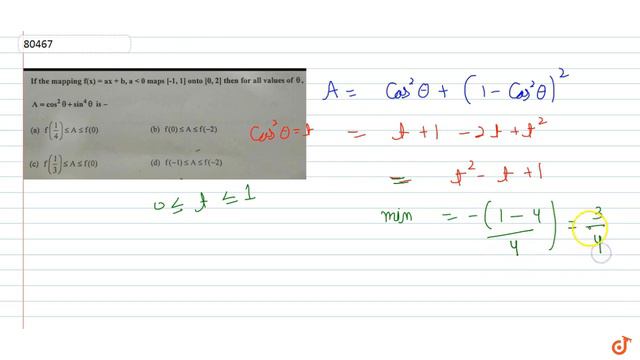 80467
If the mapping f(x) = ax + b, a < 0 maps [-1, 1] onto [0, 2] then for all values of θ,
A = cos² θ + sin⁴ θ is –
(a) f(1/4) ≤ A ≤ f(0) (b) f(0) ≤ A ≤ f(-2)
(c) f(1/3) ≤ A ≤ f(0) (d) f(-1) ≤ A ≤ f(-2)
A = Cos²θ + (1 - Cos²θ)²
Cos²θ = t = t + 1 - 2t + t²
= t² - t + 1
0 ≤ t ≤ 1
min = -(1 - 4)/4) = 3/4
doubtnut